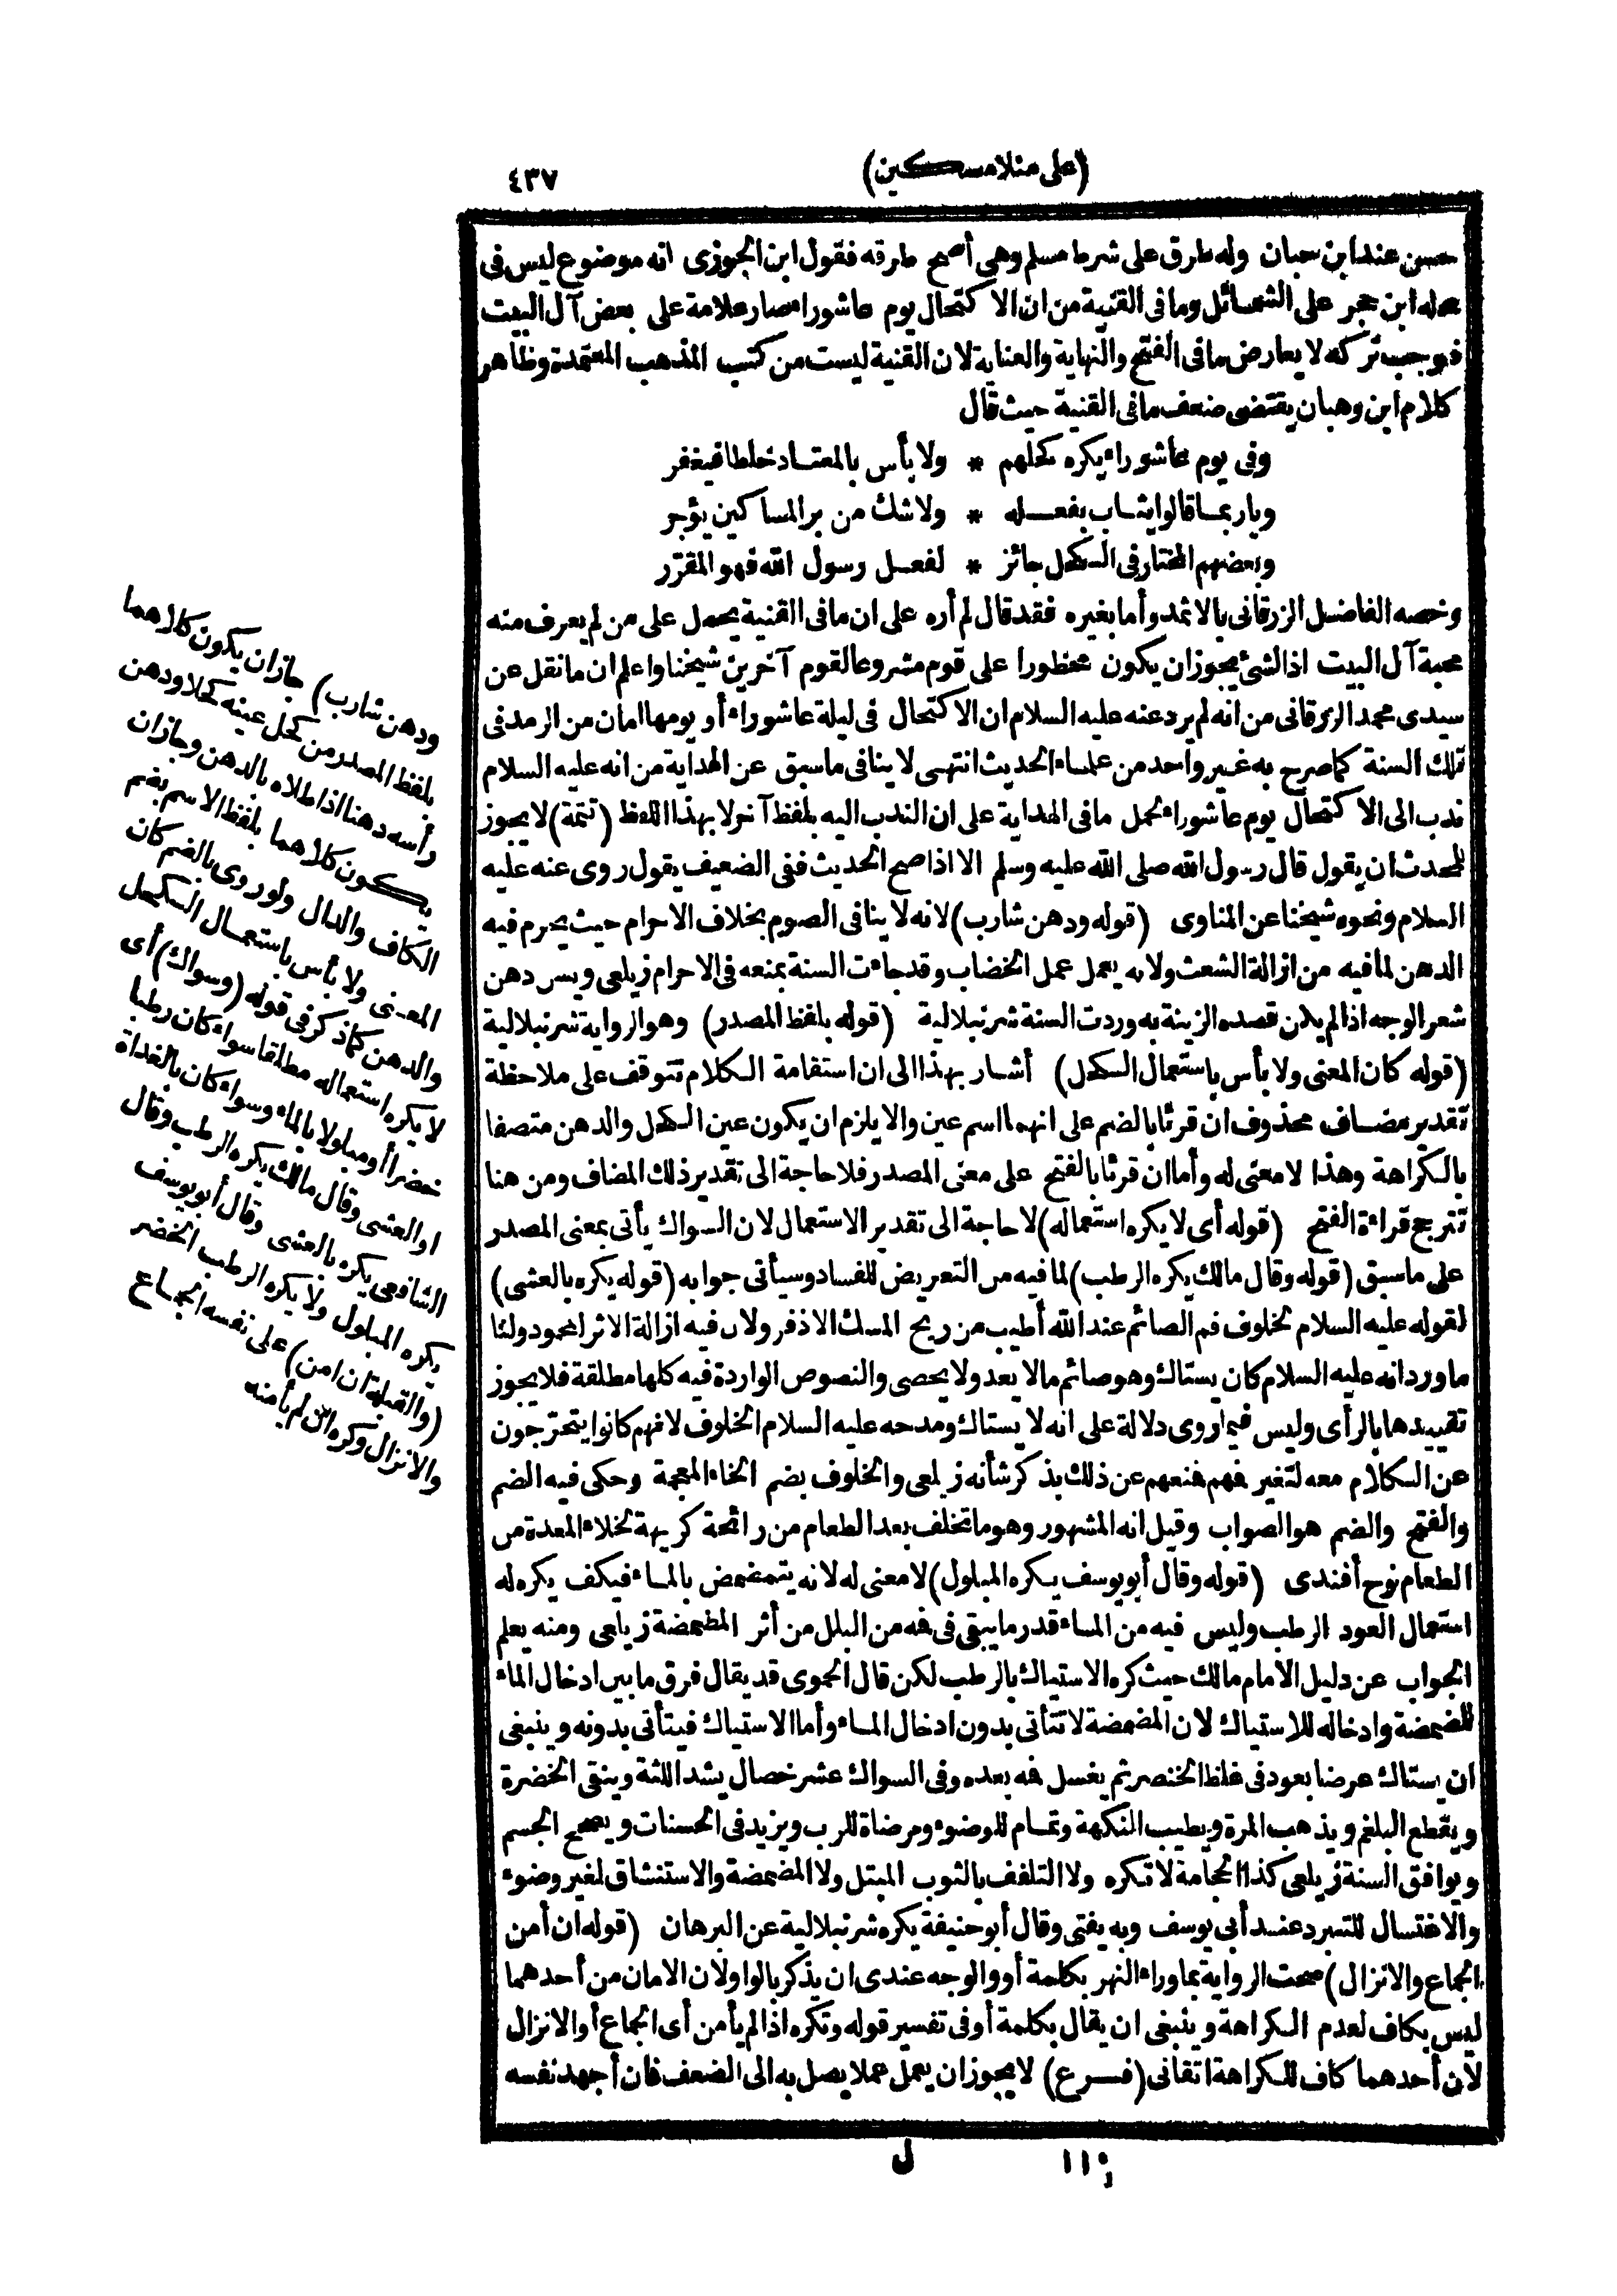 (على منلامسكين)
٤٣٧
حسن عند ابن حبان وله طرق على شرط مسلم وهى أصح طرقه فقول ابن الجوزى انه موضوع ليس فى
محله ابن حجر على الشمائل وما فى القنية من ان الاكتحال يوم عاشوراء صار علامة على بعض آل البيت
فوجب تركه لا يعارض ما فى الفتح والنهاية والعناية لان القنية ليست من كتب المذهب المعتمدة وظاهر
كلام ابن وهبان يقتضى ضعف ما فى القنية حيث قال
وفى يوم عاشوراء يكره كحلهم * ولا بأس بالمعتاد خلطا فيغفر
ويار بما قالوا يثاب بفعله * ولا شك من بر المساكين يؤجر
وبعضهم المختار فى الكحل جائز * لفعل رسول الله فهو المقرّر
وخصه الفاضل الزرقانى بالاثمد وأما بغيره فقد قال لم أره على ان ما فى القنية يحمل على من لم يعرف منه
محبة آل البيت اذ الشئ يجوز ان يكون محظورا على قوم مشروعا لقوم آخرين شيخنا واعلم ان ما نقل عن
سيدى محمد الزرقانى من انه لم يرد عنه عليه السلام ان الاكتحال فى ليلة عاشوراء أو يومها امان من الرمد فى
تلك السنة كما صرح به غير واحد من علماء الحديث انتهى لا ينافى ما سبق عن الهداية من انه عليه السلام
ندب الى الاكتحال يوم عاشوراء لحمل ما فى الهداية على ان الندب اليه بلفظ آخر لا بهذا اللفظ (تتمة) لا يجوز
للمحدث ان يقول قال رسول الله صلى الله عليه وسلم الا اذا صح الحديث ففى الضعيف يقول روى عنه عليه
السلام ونحوه شيخنا عن المناوى (قوله ودهن شارب) لانه لا ينافى الصوم بخلاف الاحرام حيث يحرم فيه
الدهن لما فيه من ازالة الشعث ولانه يعمل عمل الخضاب وقد جاءت السنة بمنعه فى الاحرام زيلعى ويسن دهن
شعر الوجه اذا لم يكن قصده الزينة به وردت السنة شرنبلالية (قوله بلفظ المصدر) وهو الرواية شرنبلالية
(قوله كان المعنى ولا بأس باستعمال الكحل) أشار بهذا الى ان استقامة الكلام تتوقف على ملاحظة
تقدير مضاف محذوف ان قرئا بالضم على انهما اسم عين والا يلزم ان يكون عين الكحل والدهن متصفا
بالكراهة وهذا لا معنى له وأما ان قرئا بالفتح على معنى المصدر فلا حاجة الى تقدير ذلك المضاف ومن هنا
تترجح قراءة الفتح (قوله أى لا يكره استعماله) لا حاجة الى تقدير الاستعمال لان السواك يأتى بمعنى المصدر
على ما سبق (قوله وقال مالك يكره الرطب) لما فيه من التعريض للفساد وسيأتى جوابه (قوله يكره بالعشى)
لقوله عليه السلام لخلوف فم الصائم عند الله أطيب من ريح المسك الاذفر ولان فيه ازالة الاثر المحمود ولنا
ما ورد انه عليه السلام كان يستاك وهو صائم مالا يعد ولا يحصى والنصوص الواردة فيه كلها مطلقة فلا يجوز
تقييدها بالرأى وليس فيما روى دلالة على انه لا يستاك ومدحه عليه السلام الخلوف لانهم كانوا يتحرّجون
عن الكلام معه لتغير فهم فمنعهم عن ذلك بذكر شأنه زيلعى والخلوف بضم الخاء المعجمة وحكى فيه الضم
والفتح والضم هو الصواب وقيل انه المشهور وهو ما تخلف بعد الطعام من رائحة كريهة لخلاء المعدة من
الطعام نوح أفندى (قوله وقال أبو يوسف يكره المبلول) لا معنى له لانه يتمضمض بالماء فيكف يكره له
استعمال العود الرطب وليس فيه من الماء قدر ما يبقى فى فه من البلل من أثر المضمضة زيلعى ومنه يعلم
الجواب عن دليل الامام مالك حيث كره الاستياك بالرطب لكن قال الحموى قد يقال فرق ما بين ادخال الماء
للضمضة وادخاله للاستياك لان المضمضة لا تتأتى بدون ادخال الماء وأما الاستياك فيتأتى بدونه وينبغى
ان يستاك عرضا بعود فى غلظ الخنصر ثم يغسل فه بعده وفى السواك عشر خصال يشد اللثة وينقى الخضرة
ويقطع البلغم ويذهب المرة ويطيب النكهة وتمام للوضوء ومرضاة للرب ويزيد فى الحسنات ويصحح الجسم
ويوافق السنة زيلعى كذا الحجامة لا تكره ولا التلفف بالثوب المبتل ولا المضمضة والاستنشاق لغير وضوء
والاغتسال للتبرد عند أبى يوسف وبه يفتى وقال أبو حنيفة يكره شرنبلالية عن البرهان (قوله ان أمن
الجماع والانزال) صحت الرواية بما وراء النهر بكلمة أو والوجه عندى ان يذكر بالواو لان الامان من أحدهما
ليس بكاف لعدم الكراهة وينبغى ان يقال بكلمة أو فى تفسير قوله وتكره اذا لم يأمن أى الجماع أو الانزال
لان أحدهما كاف للكراهة اتقانى (فرع) لا يجوز ان يعمل عملا يصل به الى الضعف فان أجهد نفسه
ودهن شارب) جاز ان يكون كلاهما
بلفظ المصدر من كحل عينه كحلا ودهن
رأسه دهنا اذا طلاه بالدهن وجاز ان
يكون كلاهما بلفظ الاسم بضم
الكاف والدال ولو روى بالضم كان
المعنى ولا بأس باستعمال الكحل
والدهن كما ذكر فى قوله (وسواك) أى
لا يكره استعماله مطلقا سواء كان رطبا
خضرا أو مبلولا بالماء وسواء كان بالغداة
او العشى وقال مالك يكره الرطب وقال
الشافعى يكره بالعشى وقال أبو يوسف
يكره المبلول ولا يكره الرطب الخضر
(والقبلة ان امن) على نفسه الجماع
والانزال وكره ان لم يأمنه
ل